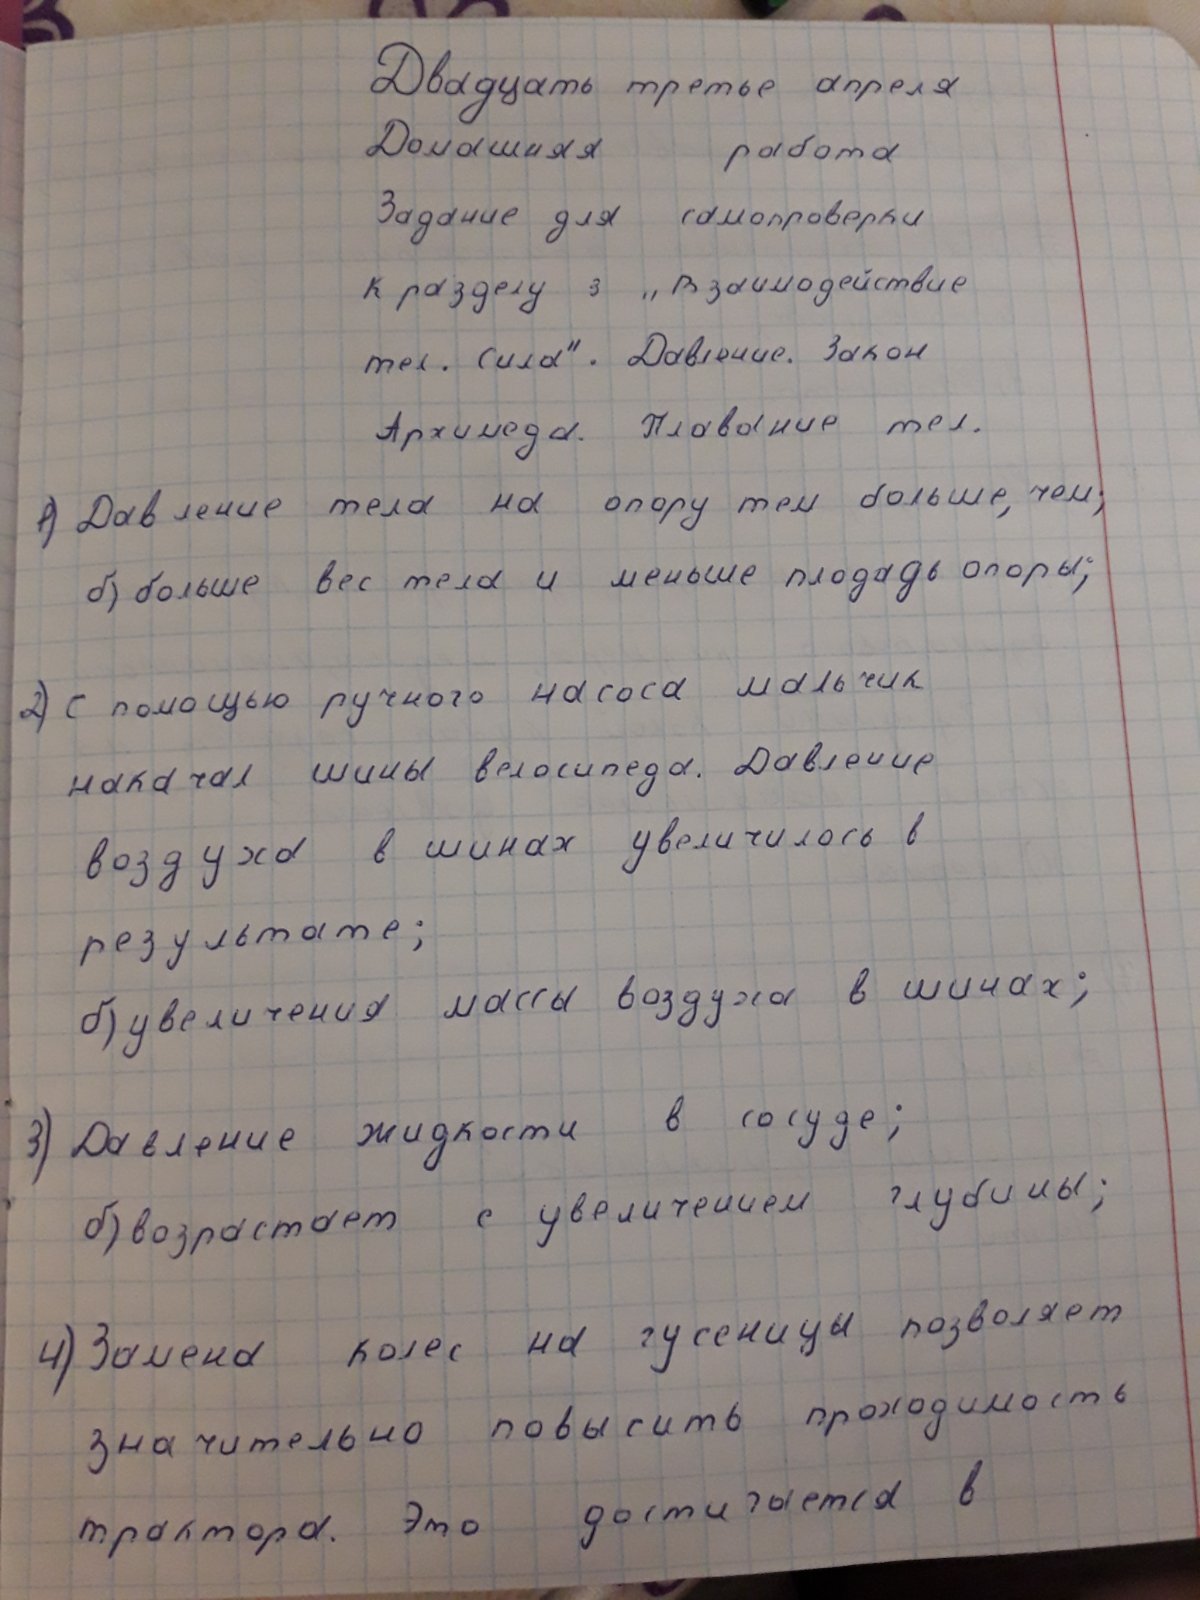 Двадцать третье апреля
Домашняя работа
Задание для самопроверки
к разделу 3 „Взаимодействие
тел. Сила". Давление. Закон
Архимеда. Плавание тел.
1) Давление тела на опору тем больше, чем;
б) больше вес тела и меньше плодадь опоры;
2) С помощью ручного насоса мальчик
накачал шины велосипеда. Давление
воздуха в шинах увеличилось в
результате;
б) увеличения массы воздуха в шинах;
3) Давление жидкости в сосуде;
б) возрастает с увеличением глубины;
4) Замена колес на гусеницы позволяет
значительно повысить проходимость
трактора. Это достигается в